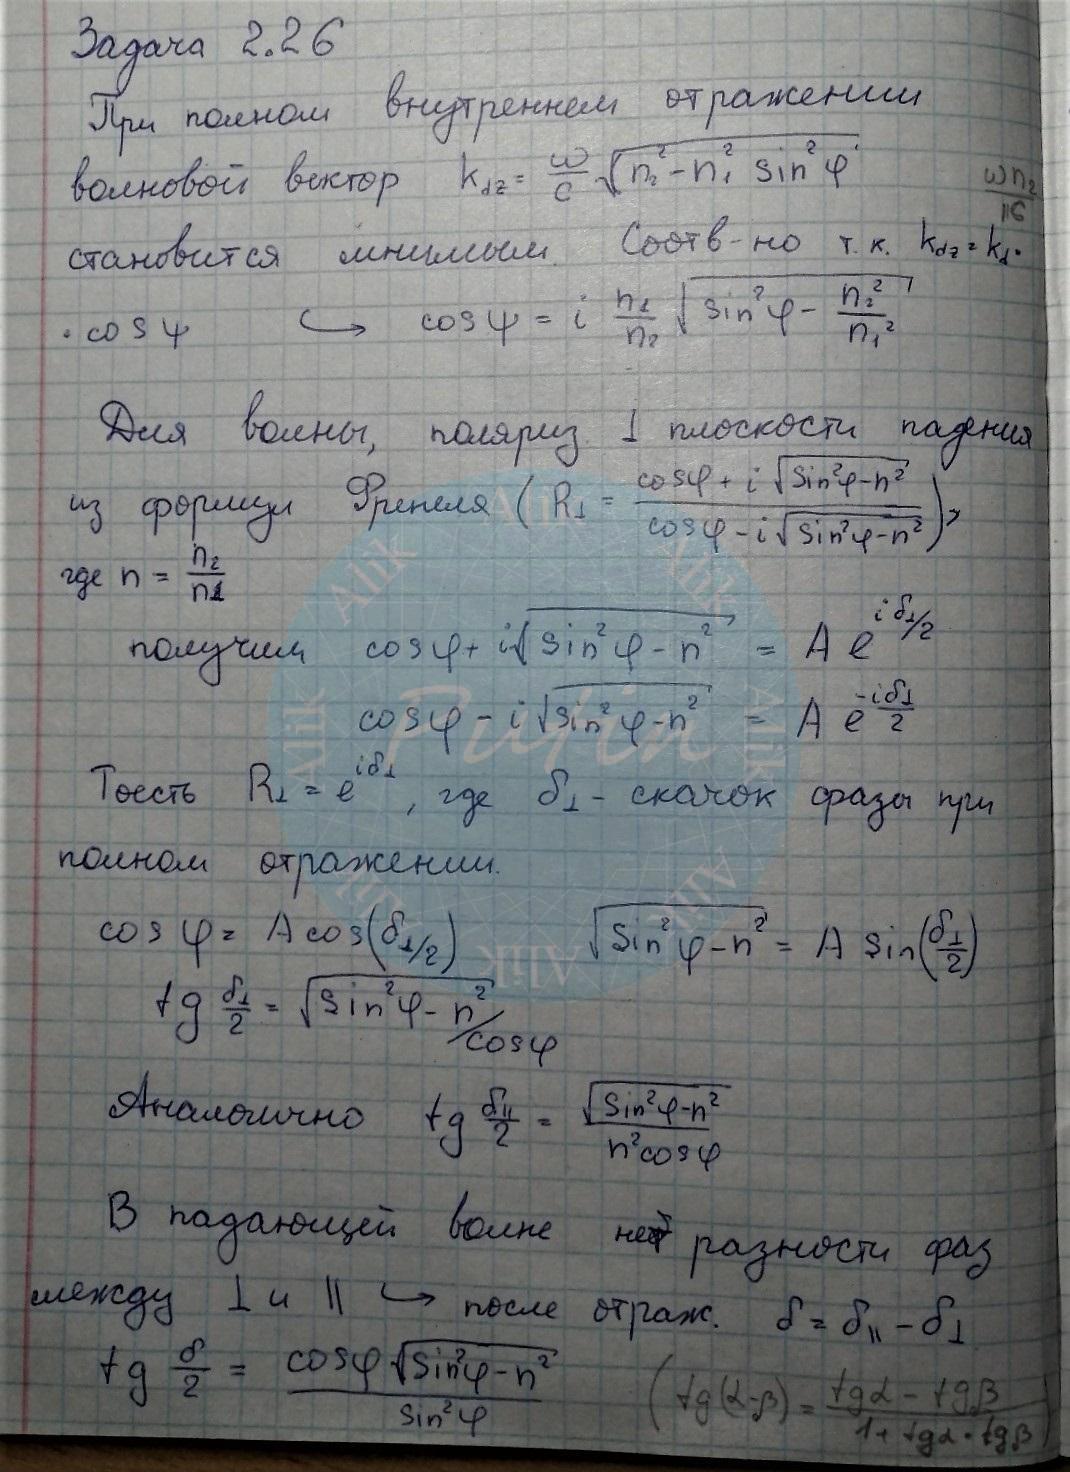 Задача 2.26
При полном внутреннем отражении
волновой вектор k_{dz} = \frac{ω}{c} \sqrt{n_2^2 - n_1^2 sin^2 φ}
\frac{ω n_2}{}
становится мнимым. Соотв-но т.к. k_{dz} = k_d ·
· cos ψ ↪ cos ψ = i \frac{n_1}{n_2} \sqrt{sin^2 φ - \frac{n_2^2}{n_1^2}}
Для волны, поляриз. ⊥ плоскости падения
из формул Френеля ( R_⊥ = \frac{cos φ + i \sqrt{sin^2 φ - n^2}}{cos φ - i \sqrt{sin^2 φ - n^2}} ),
где n = \frac{n_2}{n_1}
получим cos φ + i \sqrt{sin^2 φ - n^2} = A e^{i δ_⊥/2}
cos φ - i \sqrt{sin^2 φ - n^2} = A e^{-i \frac{δ_⊥}{2}}
Тоесть R_⊥ = e^{i δ_⊥}, где δ_⊥ - скачок фазы при
полном отражении.
cos φ = A cos(δ_⊥/2) \sqrt{sin^2 φ - n^2} = A sin(\frac{δ_⊥}{2})
tg \frac{δ_⊥}{2} = \sqrt{sin^2 φ - n^2} / cos φ
Аналогично tg \frac{δ_{||}}{2} = \frac{\sqrt{sin^2 φ - n^2}}{n^2 cos φ}
В падающей волне нет разности фаз
между ⊥ и || ↪ после отраж. δ = δ_{||} - δ_⊥
tg \frac{δ}{2} = \frac{cos φ \sqrt{sin^2 φ - n^2}}{sin^2 φ} ( tg(α-β) = \frac{tg α - tg β}{1 + tg α · tg β} )
Alik
Alik
Alik
Alik
Alik
Alik
Alik
Alik